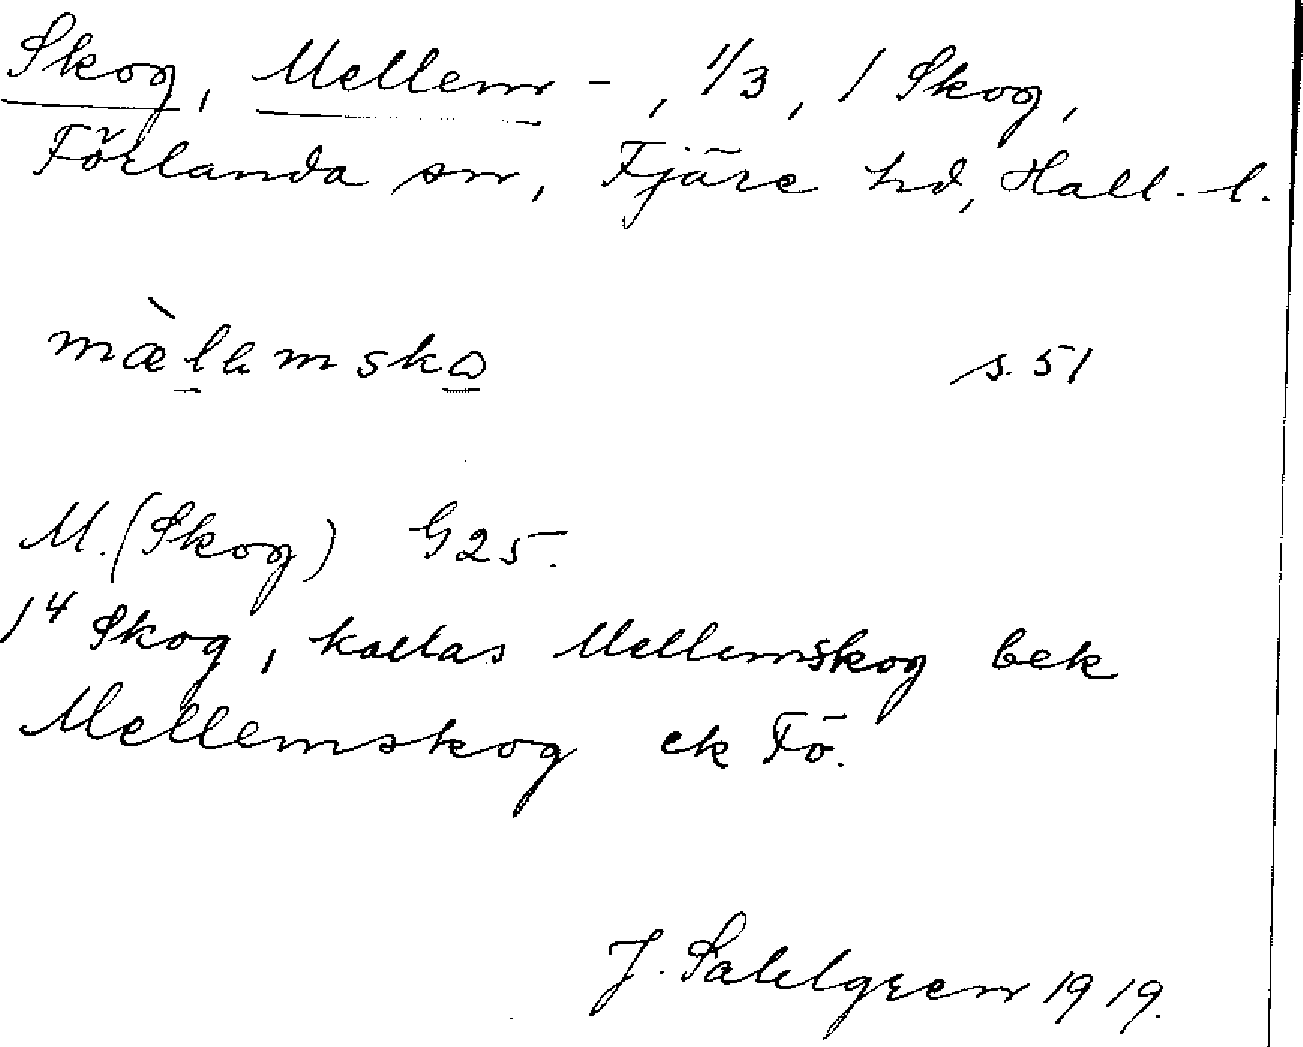 Skog, Mellem -, 1/3, 1 Skog,
Förlanda sn, Fjäre hd, Hall. l.
mæ̀lamsko s. 51
M. (Skog) G25.
1⁴ Skog, kallas Mellemskog bek
Mellemskog ek Fö.
J. Sahlgren 1919.